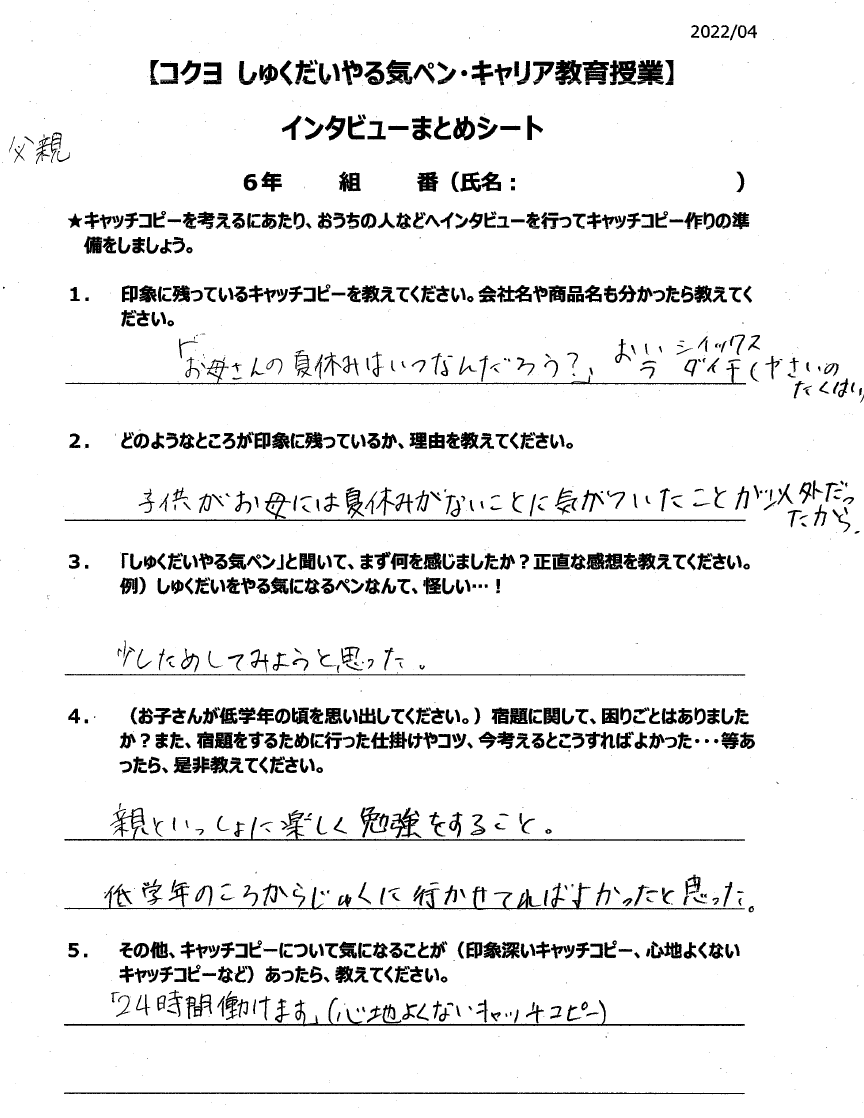 2022/04
【コクヨ しゅくだいやる気ペン・キャリア教育授業】
インタビューまとめシート
父親
6年 組 番（氏名： ）
★キャッチコピーを考えるにあたり、おうちの人などへインタビューを行ってキャッチコピー作りの準
備をしましょう。
1． 印象に残っているキャッチコピーを教えてください。会社名や商品名も分かったら教えてく
ださい。
「お母さんの夏休みはいつなんだろう？」 おいシイックス
ラ ダイチ(やさいの
たくはい)
2． どのようなところが印象に残っているか、理由を教えてください。
子供がお母には夏休みがないことに気がついたことが以外だっ
たから.
3． 「しゅくだいやる気ペン」と聞いて、まず何を感じましたか？正直な感想を教えてください。
例）しゅくだいをやる気になるペンなんて、怪しい…！
少しためしてみようと思った。
4． （お子さんが低学年の頃を思い出してください。）宿題に関して、困りごとはありました
か？また、宿題をするために行った仕掛けやコツ、今考えるとこうすればよかった・・・等あ
ったら、是非教えてください。
親といっしょに楽しく勉強をすること。
低学年のころからじゅくに行かせてればよかったと思った。
5． その他、キャッチコピーについて気になることが（印象深いキャッチコピー、心地よくない
キャッチコピーなど）あったら、教えてください。
「24時間働けます」(心地よくないキャッチコピー)